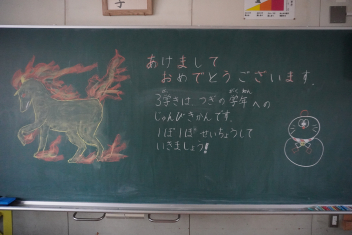 子
あけまして
おめでとうございます.
3学きは、つぎの学年への
じゅんびきかんです.
1ぽ1ぽ せいちょうして
いきましょう!